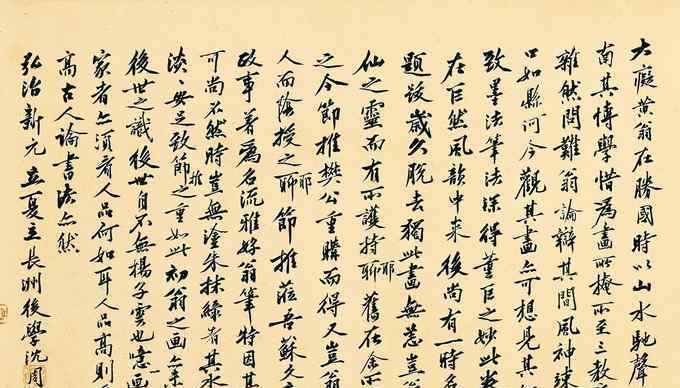 大癡黃翁在勝國時以山水馳聲
南其博學惜為畫所掩所至三教
雜然問難翁論辯其間風神竦
口如縣河今觀其畫亦可想見其
致墨法筆法深得董巨之妙此卷
在巨然風韻中来後尚有一時名
題跋歲久脫去獨此畫無恙豈翁
仙之靈而有所護持聊耶舊在余所
之今節推樊公重購而得又豈翁
人而陰授之聊耶節推蒞吾蘇文
政事著為名流雅好翁筆特因其
可尚不然時豈無塗朱抹綠者其水
淡〻安足致節推之重如此初翁之畫亦
後世之識後世自不無揚子雲也噫畫
家者亦須看人品何如耳人品高則
高古人論書法亦然
弘治新元立夏立長洲後學沈周